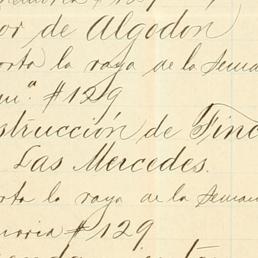 moria # 129
or de Algodon
orta la raya de la Sema
m.ª # 129
strucción de Finc
Las Mercedes.
rta la raya de la Seman
moria # 129